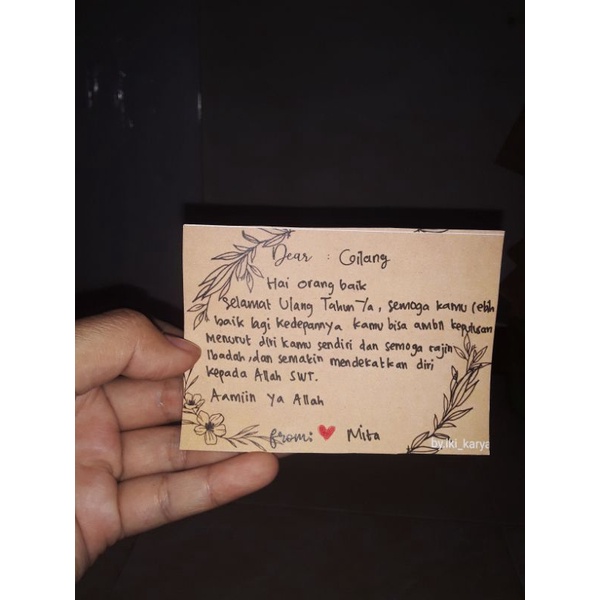 Dear : Gilang
Hai orang baik
Selamat Ulang Tahun Ya, semoga kamu lebih
baik lagi kedepannya kamu bisa ambil keputusan
Menurut diri kamu sendiri dan semoga rajin
Ibadah, dan semakin mendekatkan diri
kepada Allah SWT.
Aamiin Ya Allah
from: Mita
by.iki_karya